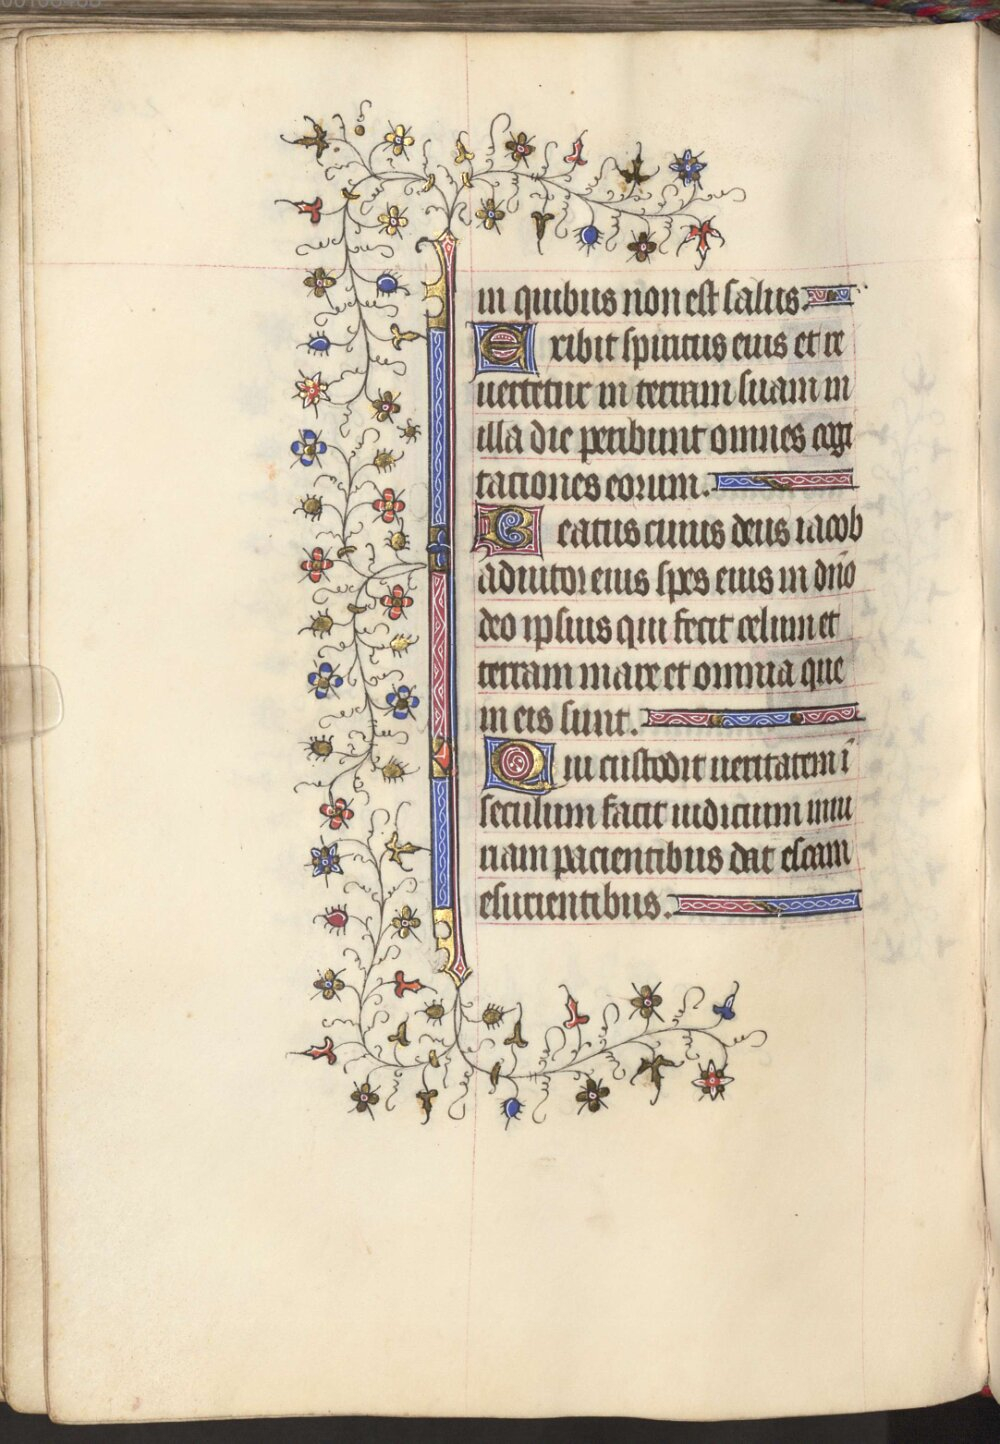 in quibus non est salus.
Exibit spiritus eius et re
uertetur in terram suam in
illa die peribunt omnes cogi
tationes eorum.
Beatus cuius deus iacob
adiutor eius spes eius in dño
deo ipsius qui fecit celum et
terram mare et omnia que
in eis sunt.
Qui custodit ueritatem ī
seculum facit iudicium iniu
riam pacientibus dat escam
esurientibus.